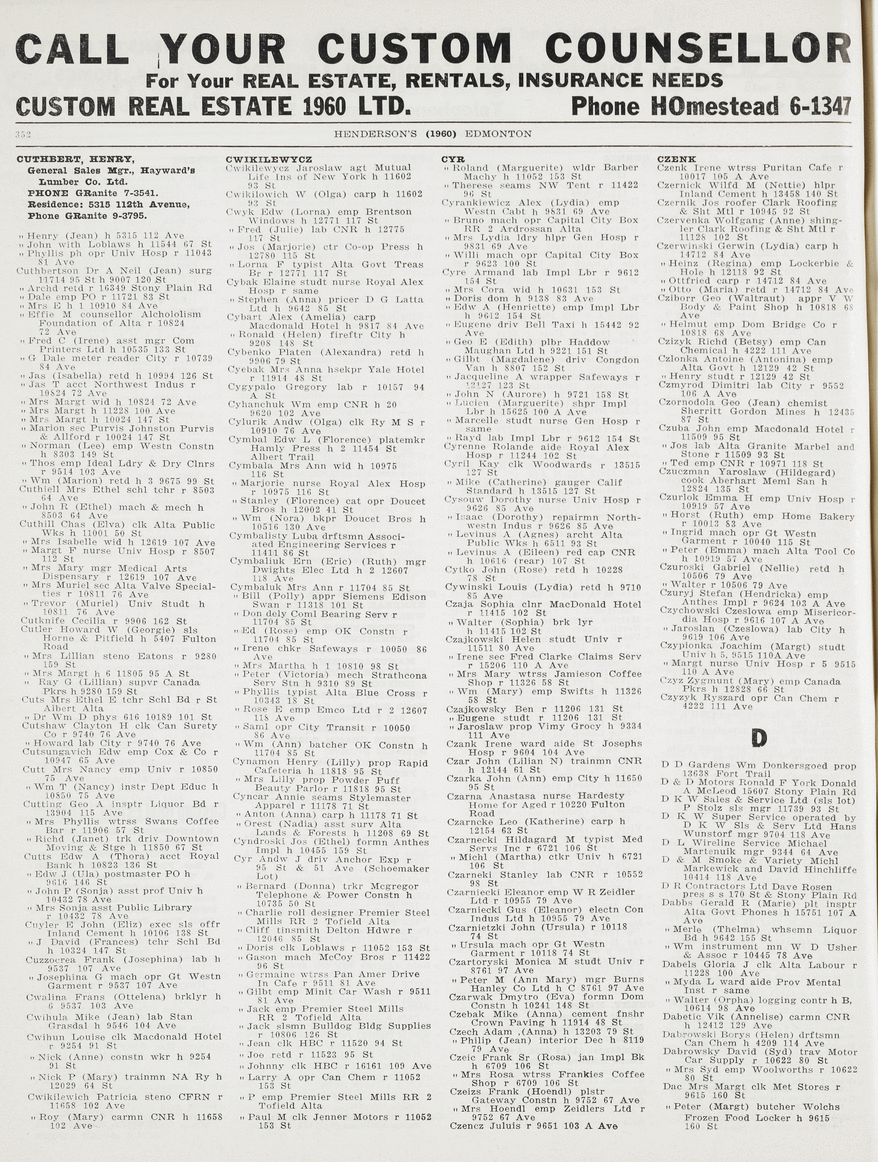 CALL YOUR CUSTOM COUNSELLOR
For Your REAL ESTATE, RENTALS, INSURANCE NEEDS
CUSTOM REAL ESTATE 1960 LTD. Phone HOmestead 6-1347
352 HENDERSON'S (1960) EDMONTON
CUTHBERT, HENRY,
General Sales Mgr., Hayward's
Lumber Co. Ltd.
PHONE GRanite 7-3541.
Residence: 5315 112th Avenue,
Phone GRanite 9-3795.
" Henry (Jean) h 5315 112 Ave
" John with Loblaws h 11544 67 St
" Phyllis ph opr Univ Hosp r 11043
81 Ave
Cuthbertson Dr A Neil (Jean) surg
11714 95 St h 9007 120 St
" Archd retd r 16349 Stony Plain Rd
" Dale emp PO r 11721 83 St
" Mrs E h 1 10910 84 Ave
" Effie M counsellor Alchololism
Foundation of Alta r 10824
72 Ave
" Fred C (Irene) asst mgr Com
Printers Ltd h 10535 133 St
" G Dale meter reader City r 10739
84 Ave
" Jas (Isabella) retd h 10904 126 St
" Jas T acct Northwest Indus r
10824 72 Ave
" Mrs Margt wid h 10824 72 Ave
" Mrs Margt h 11228 100 Ave
" Mrs Margt h 10024 147 St
" Marion sec Purvis Johnston Purvis
& Allford r 10024 147 St
" Norman (Lee) emp Westn Constn
h 8303 149 St
" Thos emp Ideal Ldry & Dry Clnrs
r 9514 103 Ave
" Wm (Marion) retd h 3 9675 99 St
Cuthiell Mrs Ethel schl tchr r 8503
64 Ave
" John R (Ethel) mach & mech h
8503 64 Ave
Cuthill Chas (Elva) clk Alta Public
Wks h 11001 50 St
" Mrs Isabelle wid h 12619 107 Ave
" Margt F nurse Univ Hosp r 8507
112 St
" Mrs Mary mgr Medical Arts
Dispensary r 12619 107 Ave
" Mrs Muriel sec Alta Valve Special-
ties r 10811 76 Ave
" Trevor (Muriel) Univ Studt h
10811 76 Ave
Cutknife Cecilia r 9906 162 St
Cutler Howard W (Georgie) sls
Horne & Pitfield h 5407 Fulton
Road
" Mrs Lillian steno Eatons r 9280
159 St
" Mrs Margt h 6 11805 95 A St
" Ray G (Lillian) supvr Canada
Pkrs h 9280 159 St
Cuts Mrs Ethel E tchr Schl Bd r St
Albert Alta
" Dr Wm D phys 616 10189 101 St
Cutshaw Clayton H clk Can Surety
Co r 9740 76 Ave
" Howard lab City r 9740 76 Ave
Cutsungavich Edw emp Cox & Co r
10947 65 Ave
Cutt Mrs Nancy emp Univ r 10850
75 Ave
" Wm T (Nancy) instr Dept Educ h
10850 75 Ave
Cutting Geo A insptr Liquor Bd r
13904 115 Ave
" Mrs Phyllis wtrss Swans Coffee
Bar r 11906 57 St
" Richd (Janet) trk driv Downtown
Moving & Stge h 11850 67 St
Cutts Edw A (Thora) acct Royal
Bank h 10823 136 St
" Edw J (Ula) postmaster PO h
9616 146 St
" John P (Sonja) asst prof Univ h
10432 78 Ave
" Mrs Sonja asst Public Library
r 10432 78 Ave
Cuyler E John (Eliz) exec sls offr
Inland Cement h 10106 138 St
" J David (Frances) tchr Schl Bd
h 10324 147 St
Cuzzocrea Frank (Josephina) lab h
9537 107 Ave
" Josephina G mach opr Gt Westn
Garment r 9537 107 Ave
Cwalina Frans (Ottelena) brklyr h
6 9537 103 Ave
Cwihula Mike (Jean) lab Stan
Grasdal h 9546 104 Ave
Cwihun Louise clk Macdonald Hotel
r 9254 91 St
" Nick (Anne) constn wkr h 9254
91 St
" Nick P (Mary) trainmn NA Ry h
12029 64 St
Cwikilewich Patricia steno CFRN r
11658 102 Ave
" Roy (Mary) carmn CNR h 11658
102 Ave
CWIKILEWYCZ
Cwikilewycz Jaroslaw agt Mutual
Life Ins of New York h 11602
93 St
Cwikilowich W (Olga) carp h 11602
93 St
Cwyk Edw (Lorna) emp Brentson
Windows h 12771 117 St
" Fred (Julie) lab CNR h 12775
117 St
" Jos (Marjorie) ctr Co-op Press h
12780 115 St
" Lorna F typist Alta Govt Treas
Br r 12771 117 St
Cybak Elaine studt nurse Royal Alex
Hosp r same
" Stephen (Anna) pricer D G Latta
Ltd h 9642 85 St
Cybart Alex (Amelia) carp
Macdonald Hotel h 9817 84 Ave
" Ronald (Helen) fireftr City h
9208 148 St
Cybenko Platen (Alexandra) retd h
9906 79 St
Cyebak Mrs Anna hsekpr Yale Hotel
r 11914 48 St
Cygypalo Gregory lab r 10157 94
A St
Cyhanchuk Wm emp CNR h 20
9620 102 Ave
Cylurik Andw (Olga) clk Ry M S r
10910 76 Ave
Cymbal Edw L (Florence) platemkr
Hamly Press h 2 11454
Albert Trail
Cymbala Mrs Ann wid h 10975
116 St
" Marjorie nurse Royal Alex Hosp
r 10975 116 St
" Stanley (Florence) cat opr Doucet
Bros h 12002 41 St
" Wm (Nora) bkpr Doucet Bros h
10516 130 Ave
Cymbalisty Luba drftsmn Associ-
ated Engineering Services r
11411 86 St
Cymbaliuk Ern (Eric) (Ruth) mgr
Dwights Elec Ltd h 2 12607
118 Ave
Cymbaluk Mrs Ann r 11704 85 St
" Bill (Polly) appr Siemens Edison
Swan r 11318 101 St
" Don dely Coml Bearing Serv r
11704 85 St
" Ed (Rose) emp OK Constn r
11704 85 St
" Irene chkr Safeways r 10050 86
Ave
" Mrs Martha h 1 10810 98 St
" Peter (Victoria) mech Strathcona
Serv Stn h 9310 89 St
" Phyllis typist Alta Blue Cross r
10343 18 St
" Rose E emp Emco Ltd r 2 12607
118 Ave
" Saml opr City Transit r 10050
86 Ave
" Wm (Ann) batcher OK Constn h
11704 85 St
Cynamon Henry (Lilly) prop Rapid
Cafeteria h 11818 95 St
" Mrs Lilly prop Powder Puff
Beauty Parlor r 11818 95 St
Cyncar Annie seams Stylemaster
Apparel r 11178 71 St
" Anton (Anna) carp h 11178 71 St
" Orest (Nadia) asst surv Alta
Lands & Forests h 11208 69 St
Cyndroski Jos (Ethel) formn Anthes
Impl h 10455 159 St
Cyr Andw J driv Anchor Exp r
95 St & 51 Ave (Schoemaker
Lot)
" Bernard (Donna) trkr Mcgregor
Telephone & Power Constn h
10735 50 St
" Charlie roll designer Premier Steel
Mills RR 2 Tofield Alta
" Cliff tinsmith Delton Hdwre r
12046 85 St
" Doris clk Loblaws r 11052 153 St
" Gason mach McCoy Bros r 11422
96 St
" Germaine wtrss Pan Amer Drive
In Cafe r 9511 81 Ave
" Gilbt emp Minit Car Wash r 9511
81 Ave
" Jack emp Premier Steel Mills
RR 2 Tofield Alta
" Jack slsmn Bulldog Bldg Supplies
r 10806 126 St
" Jean clk HBC r 11520 94 St
" Joe retd r 11523 95 St
" Johnny clk HBC r 16161 109 Ave
" Larry A opr Can Chem r 11052
153 St
" P emp Premier Steel Mills RR 2
Tofield Alta
" Paul M clk Jenner Motors r 11052
153 St
CYR
" Roland (Marguerite) wldr Barber
Machy h 11052 153 St
" Therese seams NW Tent r 11422
96 St
Cyrankiewicz Alex (Lydia) emp
Westn Cabt h 9831 69 Ave
" Bruno mach opr Capital City Box
RR 2 Ardrossan Alta
" Mrs Lydia ldry hlpr Gen Hosp r
9831 69 Ave
" Willi mach opr Capital City Box
r 9623 100 St
Cyre Armand lab Impl Lbr r 9612
154 St
" Mrs Cora wid h 10631 153 St
" Doris dom h 9138 83 Ave
" Edw A (Henriette) emp Impl Lbr
h 9612 154 St
" Eugene driv Bell Taxi h 15442 92
Ave
" Geo E (Edith) plbr Haddow
Maughan Ltd h 9221 151 St
" Gilbt (Magdalene) driv Congdon
Van h 8807 152 St
" Jacqueline A wrapper Safeways r
12127 123 St
" John N (Aurore) h 9721 158 St
" Lucien (Marguerite) shpr Impl
Lbr h 15625 100 A Ave
" Marcelle studt nurse Gen Hosp r
same
" Rayd lab Impl Lbr r 9612 154 St
Cyrenne Rolande aide Royal Alex
Hosp r 11244 102 St
Cyril Kay clk Woodwards r 13515
127 St
" Mike (Catherine) gauger Calif
Standard h 13515 127 St
Cysouw Dorothy nurse Univ Hosp r
9626 85 Ave
" Isaac (Dorothy) repairmn North-
westn Indus r 9626 85 Ave
" Levinus A (Agnes) archt Alta
Public Wks h 6511 93 St
" Levinus A (Eileen) red cap CNR
h 10616 (rear) 107 St
Cytko John (Rose) retd h 10228
78 St
Cywinski Louis (Lydia) retd h 9710
85 Ave
Czaja Sophia clnr MacDonald Hotel
r 11415 102 St
" Walter (Sophia) brk lyr
h 11415 102 St
Czajkowski Helen studt Univ r
11511 80 Ave
" Irene sec Fred Clarke Claims Serv
r 15206 110 A Ave
" Mrs Mary wtrss Jamieson Coffee
Shop r 11326 58 St
" Wm (Mary) emp Swifts h 11326
58 St
Czajkowsky Ben r 11206 131 St
" Eugene studt r 11206 131 St
" Jaroslaw prop Vimy Grocy h 9334
111 Ave
Czank Irene ward aide St Josephs
Hosp r 9604 104 Ave
Czar John (Lilian N) trainmn CNR
h 12144 61 St
Czarka John (Ann) emp City h 11650
95 St
Czarna Anastasa nurse Hardesty
Home for Aged r 10220 Fulton
Road
Czarncke Leo (Katherine) carp h
12154 63 St
Czarnecki Hildagard M typist Med
Servs Inc r 6721 106 St
" Michl (Martha) ctkr Univ h 6721
106 St
Czarneki Stanley lab CNR r 10552
98 St
Czarniecki Eleanor emp W R Zeidler
Ltd r 10955 79 Ave
Czarniecki Gus (Eleanor) electn Con
Indus Ltd h 10955 79 Ave
Czarnietzki John (Ursula) r 10118
74 St
" Ursula mach opr Gt Westn
Garment r 10118 74 St
Czartoryski Monica M studt Univ r
8761 97 Ave
" Peter M (Ann Mary) mgr Burns
Hanley Co Ltd h C 8761 97 Ave
Czarwak Dmytro (Eva) formn Dom
Constn h 10241 148 St
Czebak Mike (Anna) cement fnshr
Crown Paving h 11914 48 St
Czech Adam (Anna) h 13203 79 St
" Philip (Jean) interior Dec h 8119
79 Ave
Czeic Frank Sr (Rosa) jan Impl Bk
h 6709 106 St
" Mrs Rosa wtrss Frankies Coffee
Shop r 6709 106 St
Czeizs Frank (Hoendl) plstr
Gateway Constn h 9752 67 Ave
" Mrs Hoendl emp Zeidlers Ltd r
9752 67 Ave
Czencz Juluis r 9651 103 A Ave
CZENK
Czenk Irene wtrss Puritan Cafe r
10017 105 A Ave
Czernick Wilfd M (Nettie) hlpr
Inland Cement h 13458 140 St
Czernik Jos roofer Clark Roofing
& Sht Mtl r 10945 92 St
Czervenka Wolfgang (Anne) shing-
ler Clark Roofing & Sht Mtl r
11128 102 St
Czerwinski Gerwin (Lydia) carp h
14712 84 Ave
" Heinz (Regina) emp Lockerbie &
Hole h 12118 92 St
" Ottfried carp r 14712 84 Ave
" Otto (Maria) retd r 14712 84 Ave
Cziborr Geo (Waltraut) appr V W
Body & Paint Shop h 10818 68
Ave
" Helmut emp Dom Bridge Co r
10818 68 Ave
Czizyk Richd (Betsy) emp Can
Chemical h 4222 111 Ave
Czlonka Antoine (Antonina) emp
Alta Govt h 12129 42 St
" Henry studt r 12129 42 St
Czmyrod Dimitri lab City r 9552
106 A Ave
Czornodola Geo (Jean) chemist
Sherritt Gordon Mines h 12435
87 St
Czuba John emp Macdonald Hotel r
11509 95 St
" Jos lab Alta Granite Marbel and
Stone r 11509 93 St
" Ted emp CNR r 10971 118 St
Czuczman Yaroslaw (Hildegard)
cook Aberhart Meml San h
12824 135 St
Czurlok Emma H emp Univ Hosp r
10919 57 Ave
" Horst (Ruth) emp Home Bakery
r 10013 83 Ave
" Ingrid mach opr Gt Westn
Garment r 10040 115 St
" Peter (Emma) mach Alta Tool Co
h 10919 57 Ave
Czuroski Gabriel (Nellie) retd h
10506 79 Ave
" Walter r 10506 79 Ave
Czuryj Stefan (Hendricka) emp
Anthes Impl r 9624 103 A Ave
Czychowski Czeslowa emp Misericor-
dia Hosp r 9616 107 A Ave
" Jaroslan (Czeslowa) lab City h
9619 106 Ave
Czypionka Joachim (Margt) studt
Univ h 5, 9515 110A Ave
" Margt nurse Univ Hosp r 5 9515
110 A Ave
Czyz Zygmunt (Mary) emp Canada
Pkrs h 12828 66 St
Czyzyk Ryszard opr Can Chem r
4222 111 Ave
D
D D Gardens Wm Donkersgoed prop
13638 Fort Trail
D & D Motors Ronald F York Donald
A McLeod 15607 Stony Plain Rd
D K W Sales & Service Ltd (sls lot)
P Stolz sls mgr 11739 93 St
D K W Super Service operated by
D K W Sls & Serv Ltd Hans
Wunstorf mgr 9704 118 Ave
D L Wireline Service Michael
Martenuik mgr 9344 64 Ave
D & M Smoke & Variety Michl
Markewick and David Hinchliffe
10414 118 Ave
D R Contractors Ltd Dave Rosen
pres s s 170 St & Stony Plain Rd
Dabbs Gerald R (Marie) plt insptr
Alta Govt Phones h 15751 107 A
Ave
" Merle (Thelma) whsemn Liquor
Bd h 9642 155 St
" Wm instrument mn W D Usher
& Assoc r 10445 78 Ave
Dabels Gloria J clk Alta Labour r
11228 100 Ave
" Myda L ward aide Prov Mental
Inst r same
" Walter (Orpha) logging contr h B,
10614 98 Ave
Dabetic Vik (Annelise) carmn CNR
h 12412 129 Ave
Dabrowski Borys (Helen) drftsmn
Can Chem h 4209 114 Ave
Dabrowsky David (Syd) trav Motor
Car Supply r 10622 80 St
" Mrs Syd emp Woolworths r 10622
80 St
Dac Mrs Margt clk Met Stores r
9615 160 St
" Peter (Margt) butcher Wolchs
Frozen Food Locker h 9615
160 St